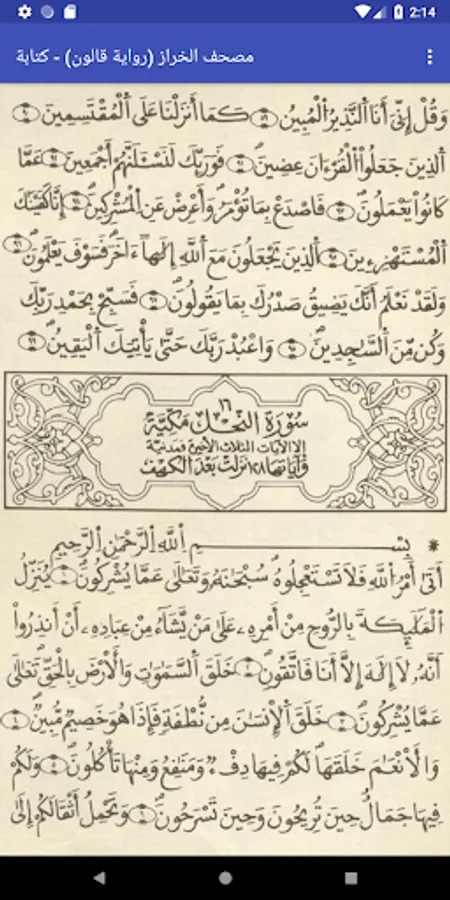 2:14
مصحف الخراز (رواية قالون) - كتابة
وَقُلْ إِنِّيَ أَنَا اَ۬لنَّذِيرُ اُ۬لْمُبِينُ ۝٨٩ كَمَا أَنزَلْنَا عَلَى اَ۬لْمُقْتَسِمِينَ ۝٩٠
اَ۬لذِينَ جَعَلُواْ اُ۬لْقُرْءَانَ عِضِينَ ۝٩١ فَوَرَبِّكَ لَنَسْـَٔلَنَّهُمُۥٓ أَجْمَعِينَ ۝٩٢ عَمَّا
كَانُواْ يَعْمَلُونَ ۝٩٣ فَاصْدَعْ بِمَا تُؤْمَرُ وَأَعْرِضْ عَنِ اِ۬لْمُشْرِكِينَ ۝٩٤ إِنَّا كَفَيْنَٰكَ
اَ۬لْمُسْتَهْزِءِينَ ۝٩٥ اَ۬لذِينَ يَجْعَلُونَ مَعَ اَ۬للَّهِ إِلَٰهاً ءَاخَرَ فَسَوْفَ يَعْلَمُونَ ۝٩٦
وَلَقَدْ نَعْلَمُ أَنَّكَ يَضِيقُ صَدْرُكَ بِمَا يَقُولُونَ ۝٩٧ فَسَبِّحْ بِحَمْدِ رَبِّكَ
وَكُن مِّنَ اَ۬لسَّٰجِدِينَ ۝٩٨ وَاعْبُدْ رَبَّكَ حَتَّىٰ يَأْتِيَكَ اَ۬لْيَقِينُ ۝٩٩
١٦
سُورَةُ النَّحْلِ مَكِّيَّةٌ
إلا الآيات الثلاث الأخيرة فمدنية
وَآيَاتها ١٢٨ نَزَلَتْ بَعْدَ الْكَهْفِ
* بِسْمِ اِ۬للَّهِ اِ۬لرَّحْمَٰنِ اِ۬لرَّحِيمِ
أَتَىٰ أَمْرُ اُ۬للَّهِ فَلَا تَسْتَعْجِلُوهُ سُبْحَٰنَهُۥ وَتَعَٰلَىٰ عَمَّا يُشْرِكُونَ ۝١ يُنَزِّلُ
اُ۬لْمَلَٰٓئِكَةَ بِالرُّوحِ مِنْ أَمْرِهِۦ عَلَىٰ مَنْ يَّشَآءُ مِنْ عِبَادِهِۦ أَنْ أَنذِرُوٓاْ
أَنَّهُۥ لَا إِلَٰهَ إِلَّا أَنَا فَاتَّقُونِ ۝٢ خَلَقَ اَ۬لسَّمَٰوَٰتِ وَالْأَرْضَ بِالْحَقِّ تَعَٰلَىٰ
عَمَّا يُشْرِكُونَ ۝٣ خَلَقَ اَ۬لْإِنسَٰنَ مِن نُّطْفَةٍ فَإِذَا هُوَ خَصِيمٌ مُّبِينٌ ۝٤
وَالْأَنْعَٰمَ خَلَقَهَا لَكُمْ فِيهَا دِفْءٌ وَمَنَٰفِعُ وَمِنْهَا تَأْكُلُونَ ۝٥ وَلَكُمْ
فِيهَا جَمَالٌ حِينَ تُرِيحُونَ وَحِينَ تَسْرَحُونَ ۝٦ وَتَحْمِلُ أَثْقَالَكُمُۥٓ إِلَىٰ